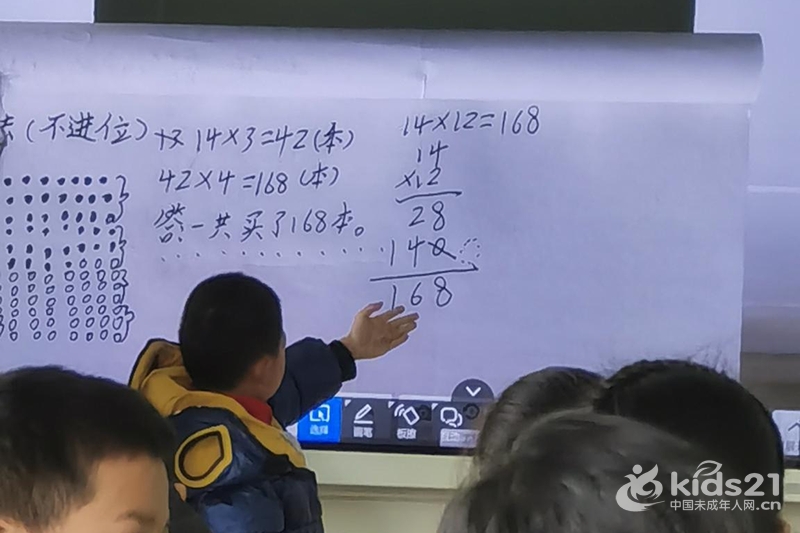 法(不进位)
14×3=42(本)
42×4=168(本)
答:一共买了168本。
14×12=168
14
×12
28
140
168
选择 画笔 板擦 互动
kids21
中国未成年人网.cn